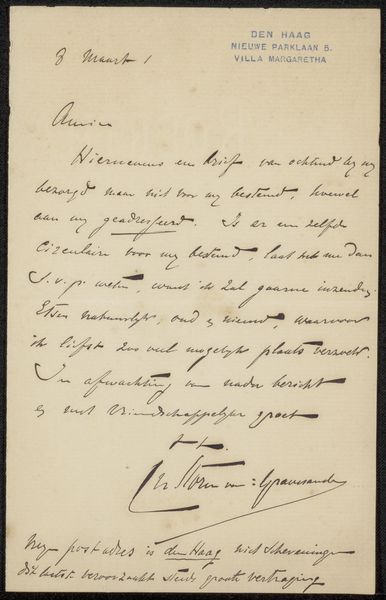 DEN HAAG
NIEUWE PARKLAAN 5.
VILLA MARGARETHA
8 Maart
Amice
Hiernevens een brief van ochtend by my
bezorgd maar niet voor my bestemd, hoewel
aan my geadresseerd. Is er een zelfde
circulaire voor my bestemd, laat het me dan
s.v.p. weten, want ik zal gaarne inzenden.
Etsen natuurlyk, oud & nieuw, waarvoor
ik liefst zoo veel mogelyk plaats verzoek.
In afwachting van nader bericht
& met vriendschappelyke groet
t.t.
Ch Storm van 's Gravesande
Myn postadres is den Haag niet Scheveningen
dit laatste veroorzaakt steeds groote vertraging